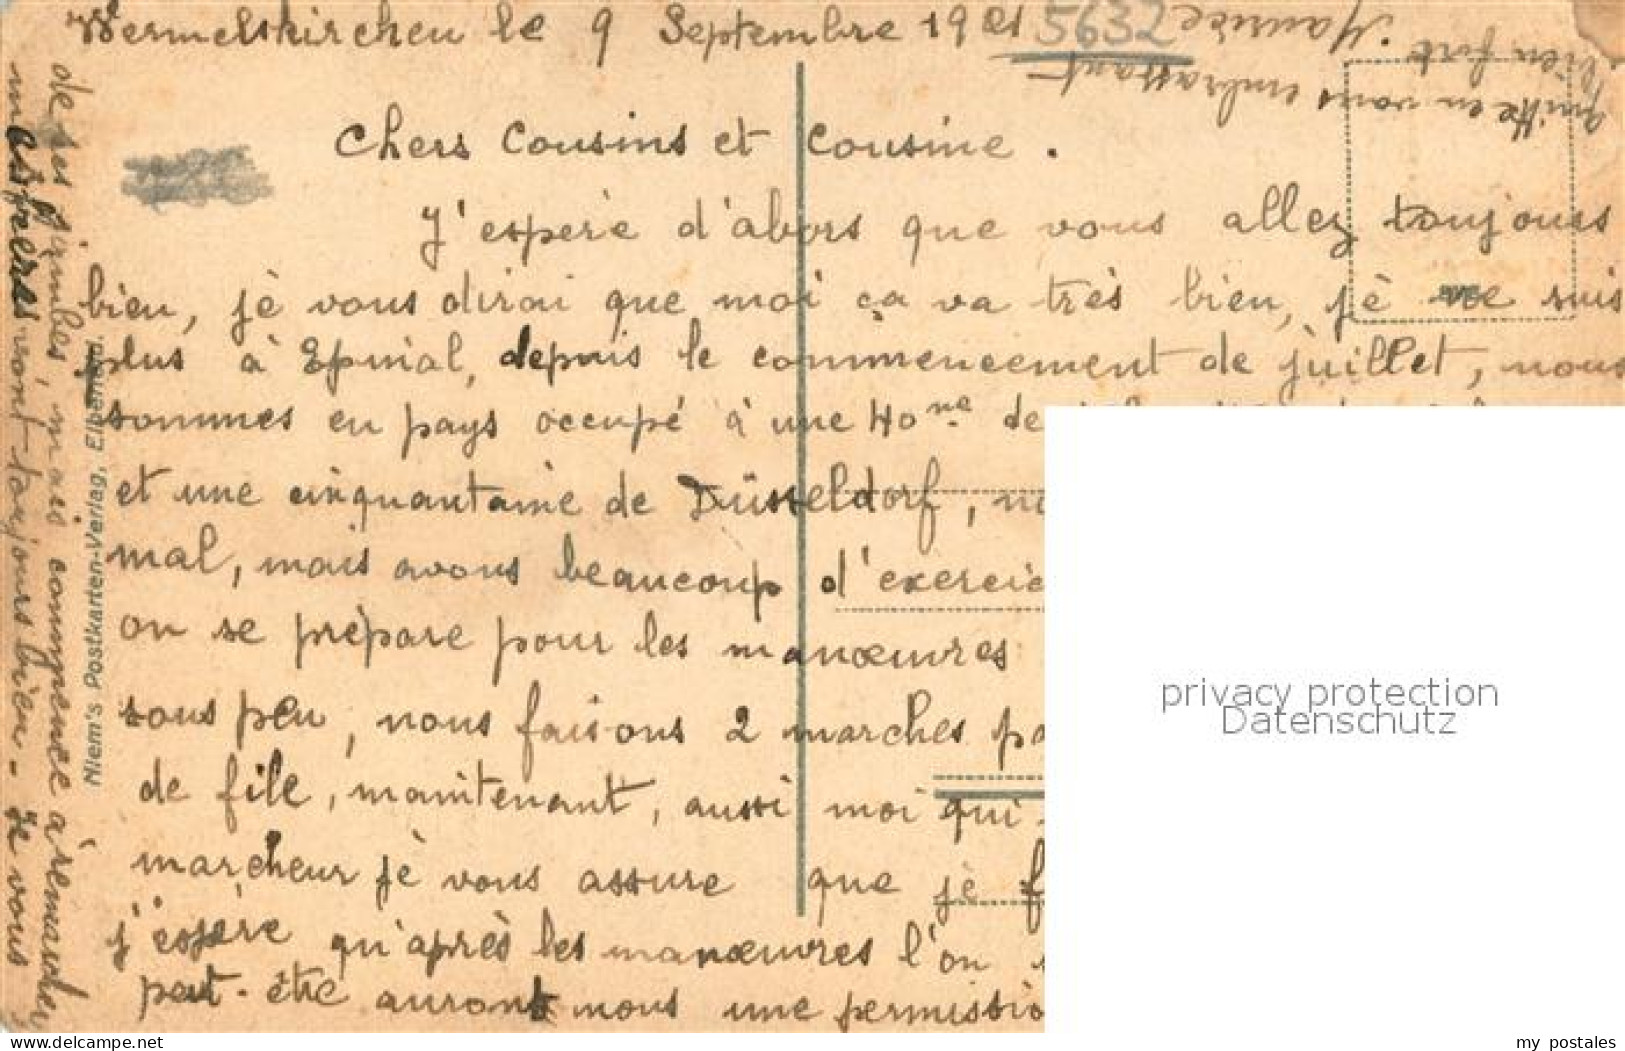 Wermelskirchen le 9 Septembre 1921
5632
Chers Cousins et Cousine.
J'espère d'abors que vous allez toujours
bien, jè vous dirai que moi ça va très bien, jè ne suis
plus à Epinal, depuis le commencement de juillet, nous
sommes en pays occupé à une 40ne de
et une cinquantaine de Düsseldorf,
mal, mais avons beaucoup d'exercic
on se prépare pour les manœuvres
sous peu, nous faisons 2 marches pa
de file, maintenant, aussi moi qui
marcheur jè vous assure que jè f
j'espère qu'après les manœuvres l'on
peut-être auront nous une permissio
de ses jambes, mes commence à remarcher
toujours bien - Je vous
quitte en vous embrassant
bien fort
Maurice
Niem's Postkarten-Verlag, Elberfeld.
privacy protection
Datenschutz
www.delcampe.net
my_postales